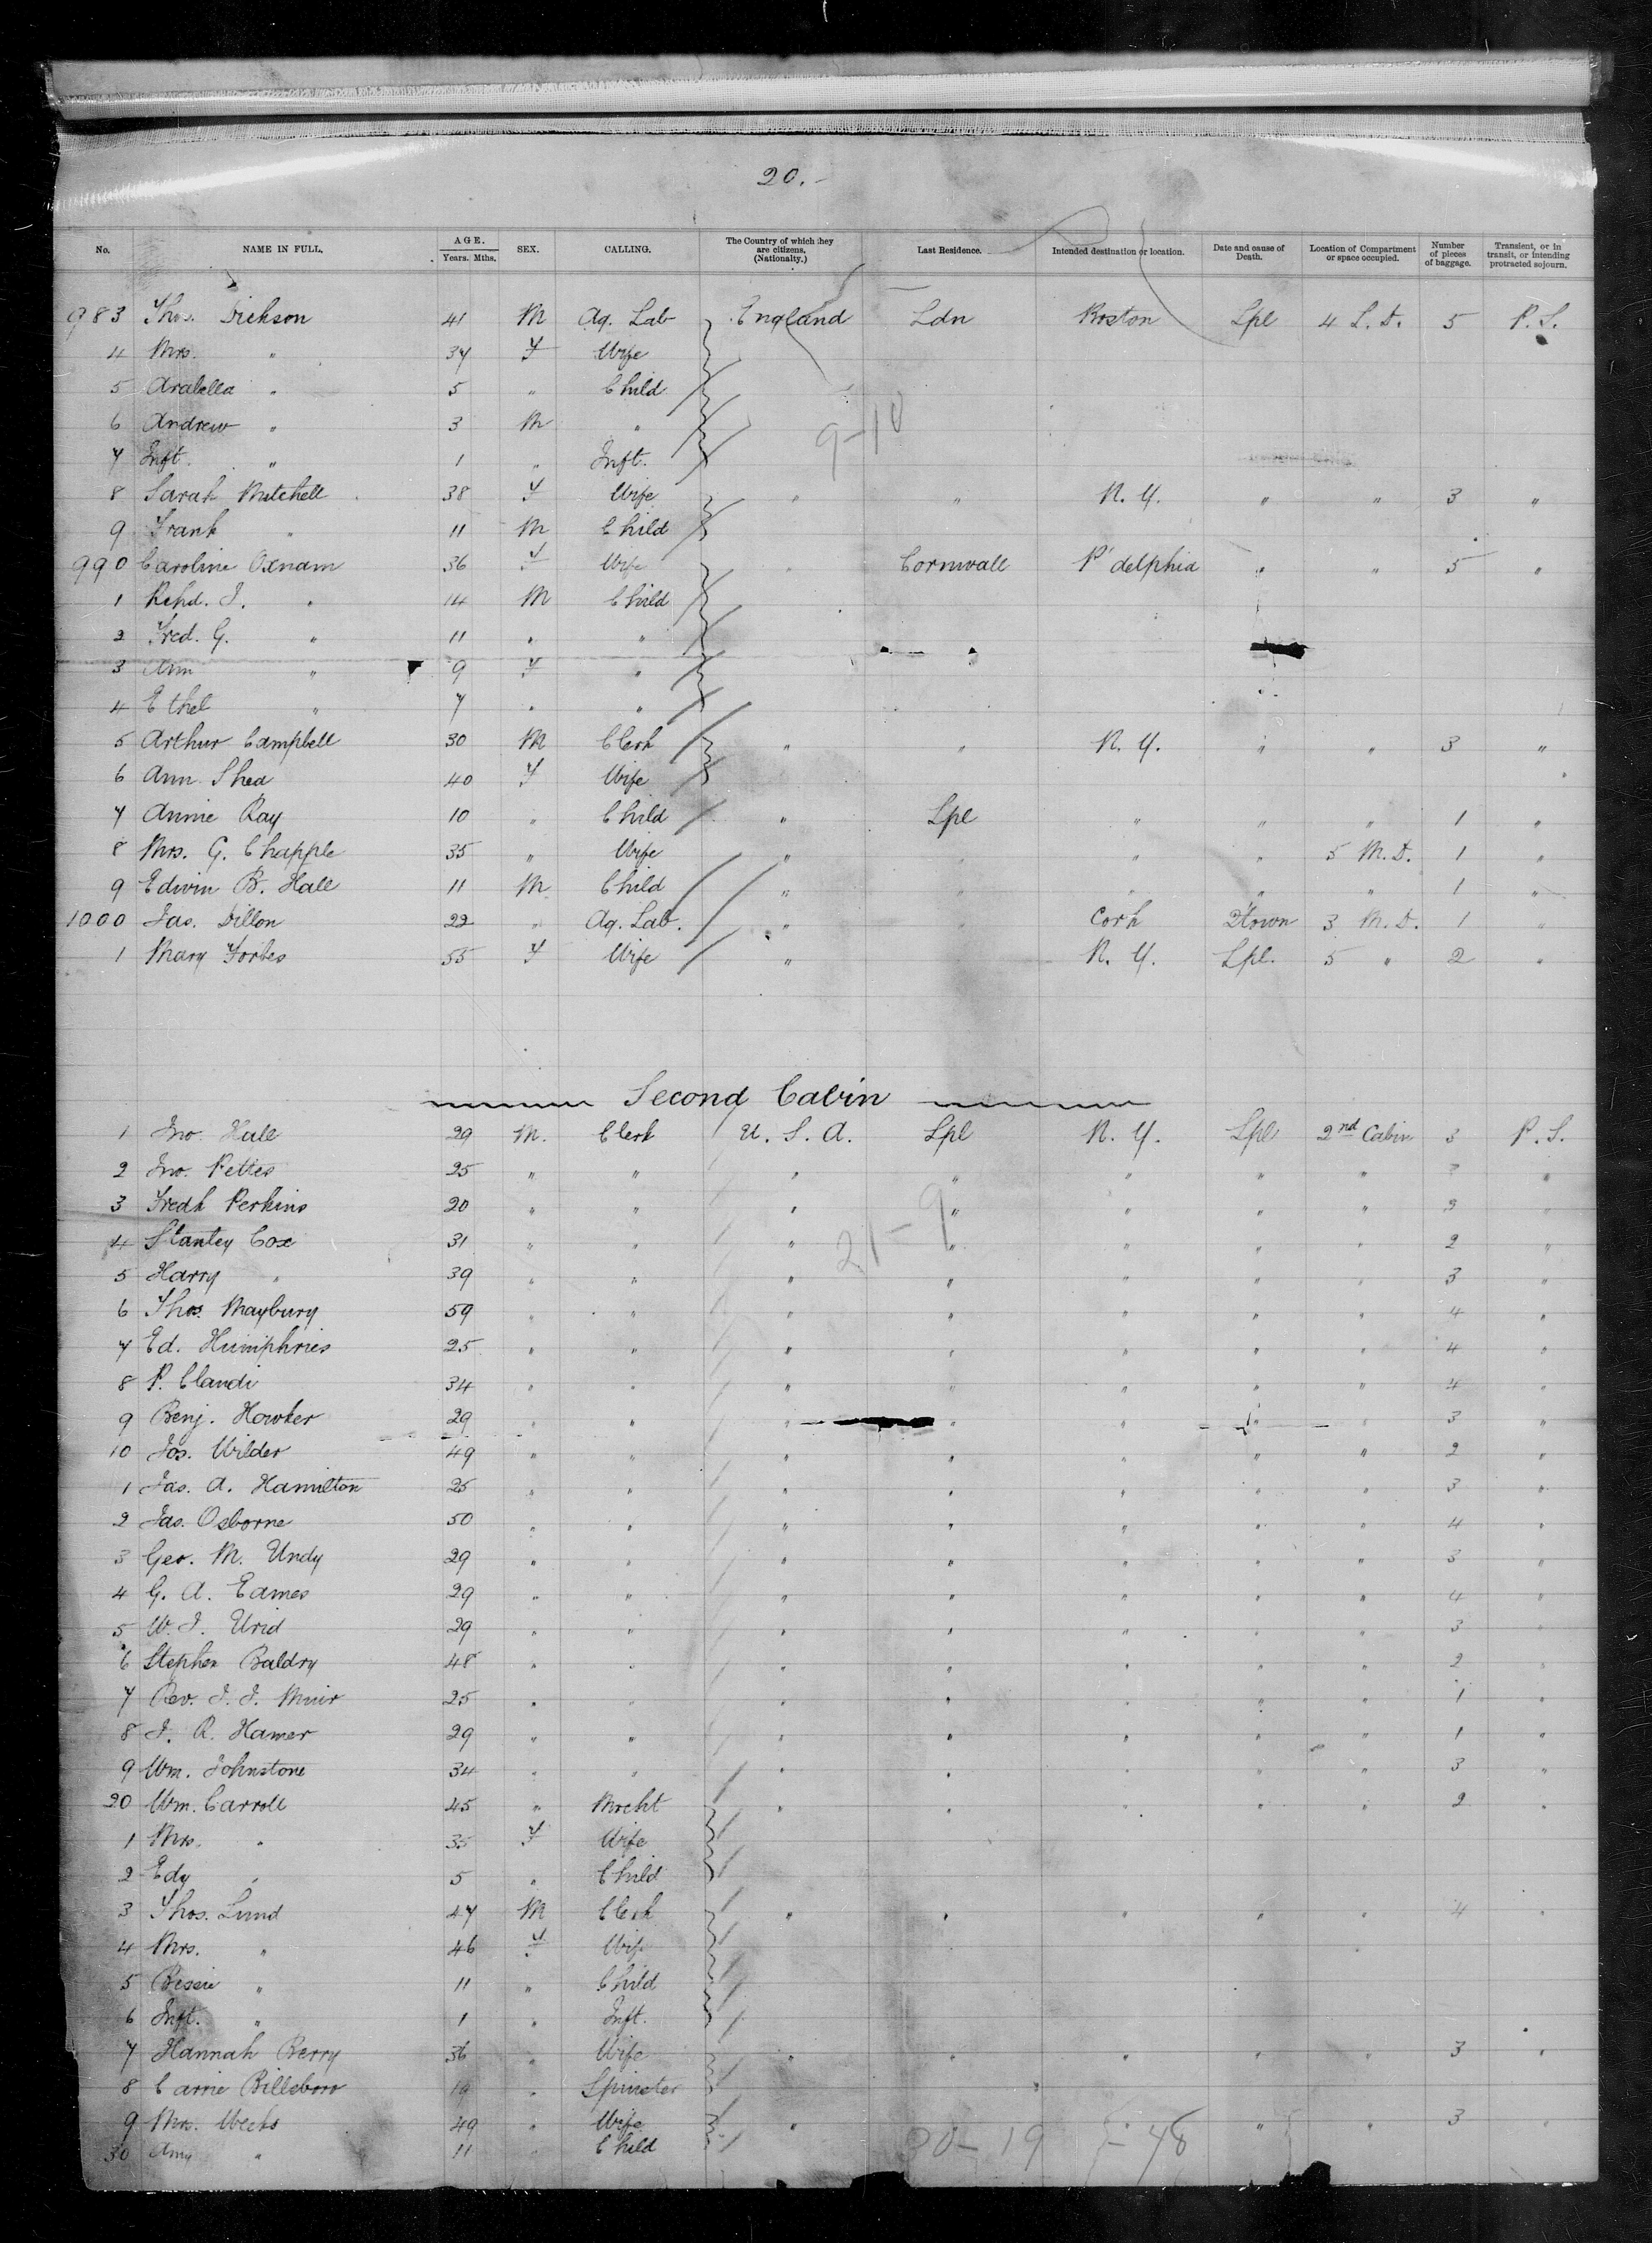 20.-
No. NAME IN FULL. AGE. Years. Mths. SEX. CALLING. The Country of which they are citizens. (Nationalty.) Last Residence. Intended destination or location. Date and cause of Death. Location of Compartment or space occupied. Number of pieces of baggage. Transient, or in transit, or intending protracted sojourn.
983 Thos. Dickson 41 M Ag. Lab England Ldn Boston Lpl 4 L.D. 5 P.S.
4 Mrs. " 37 F Wife
5 Arabella " 5 " Child
6 Andrew " 3 M "
7 Inft. " 1 " Inft.
9-10
8 Sarah Mitchell 38 F Wife " " N.Y. " " 3 "
9 Frank " 11 M Child
990 Caroline Oxnam 36 F Wife " Cornwall P'delphia " " 5 "
1 Rchd. J. " 14 M Child
2 Fred. G. " 11 " "
3 Ann " 9 F "
4 Ethel " 7 " "
5 Arthur Campbell 30 M Clerk " " N.Y. " " 3 "
6 Ann Shea 40 F Wife
7 Annie Ray 10 " Child " Lpl " " " 1 "
8 Mrs. G. Chapple 35 " Wife " " " " 5 M.D. 1 "
9 Edwin B. Hall 11 M Child " " " " " 1 "
1000 Jas. Dillon 22 " Ag. Lab. " " Cork Qtown 3 M.D. 1 "
1 Mary Forbes 55 F Wife " N.Y. Lpl. 5 " 2 "
Second Cabin
1 Jno. Hall 29 M. Clerk U.S.A. Lpl N.Y. Lpl 2nd Cabin 3 P.S.
2 Jno. Pettes 25 " " " " " " " 3 "
3 Fredk Perkins 20 " " " " " " " 3 "
21-9
4 Stanley Cox 31 " " " " " " " 2 "
5 Harry " 39 " " " " " " " 3 "
6 Thos. Maybury 59 " " " " " " " 4 "
7 Ed. Humphries 25 " " " " " " " 4 "
8 P. Claudi 34 " " " " " " " 4 "
9 Benj. Howker 29 " " " " " " " 3 "
10 Jos. Wilder 49 " " " " " " " 2 "
1 Jas. A. Hamilton 25 " " " " " " " 3 "
2 Jas. Osborne 50 " " " " " " " 4 "
3 Geo. M. Undy 29 " " " " " " " 3 "
4 G. A. Eames 29 " " " " " " " 4 "
5 W. J. Urid 29 " " " " " " " 3 "
6 Stephen Baldry 48 " " " " " " " 2 "
7 Rev. J. J. Muir 25 " " " " " " " 1 "
8 J. R. Hamer 29 " " " " " " " 1 "
9 Wm. Johnstone 34 " " " " " " " 3 "
20 Wm. Carroll 45 " Mrcht " " " " " 2 "
1 Mrs. " 35 F Wife
2 Edy " 5 " Child
3 Thos. Lund 47 M Clerk " " " " " 4 "
4 Mrs. " 46 F Wife
5 Bessie " 11 " Child
6 Inft. " 1 " Inft.
7 Hannah Berry 36 " Wife " " " " " 3 "
8 Carrie Billsboro 19 " Spinster
9 Mrs. Weeks 49 " Wife " " " " 3 "
30 Amy " 11 " Child
30-19 48